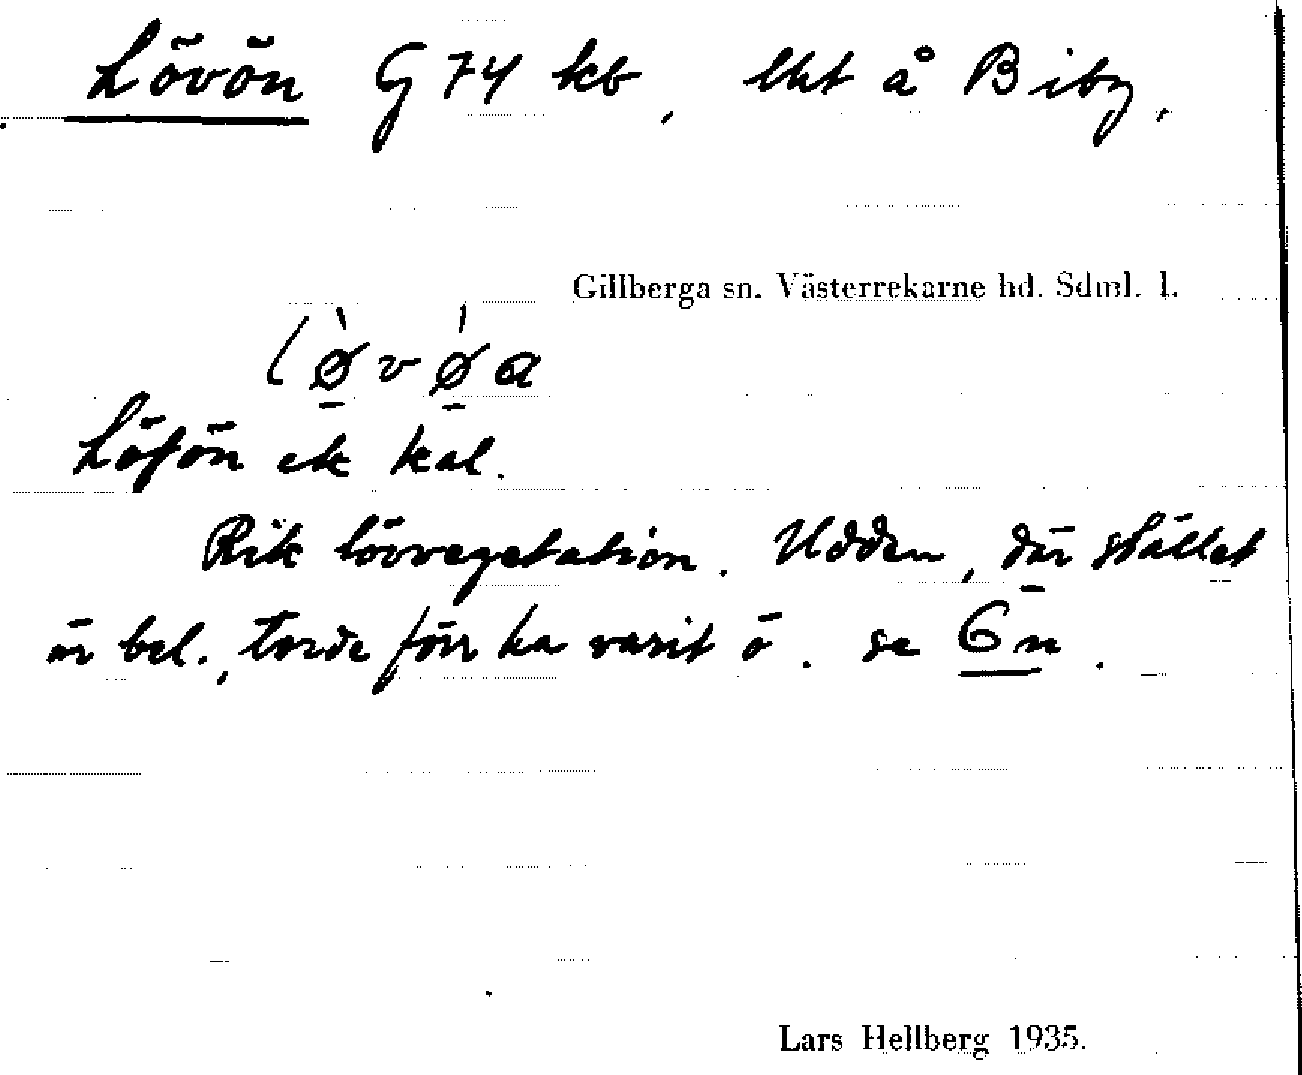 Lövön G 74 kb, lht å Biby.
Gillberga sn. Västerrekarne hd. Sdml. l.
lø̀vǿa
Löfön ek kal.
Rik lövvegetation. Udden, där stället
är bel., torde förr ha varit ö. se Ön.
Lars Hellberg 1935.